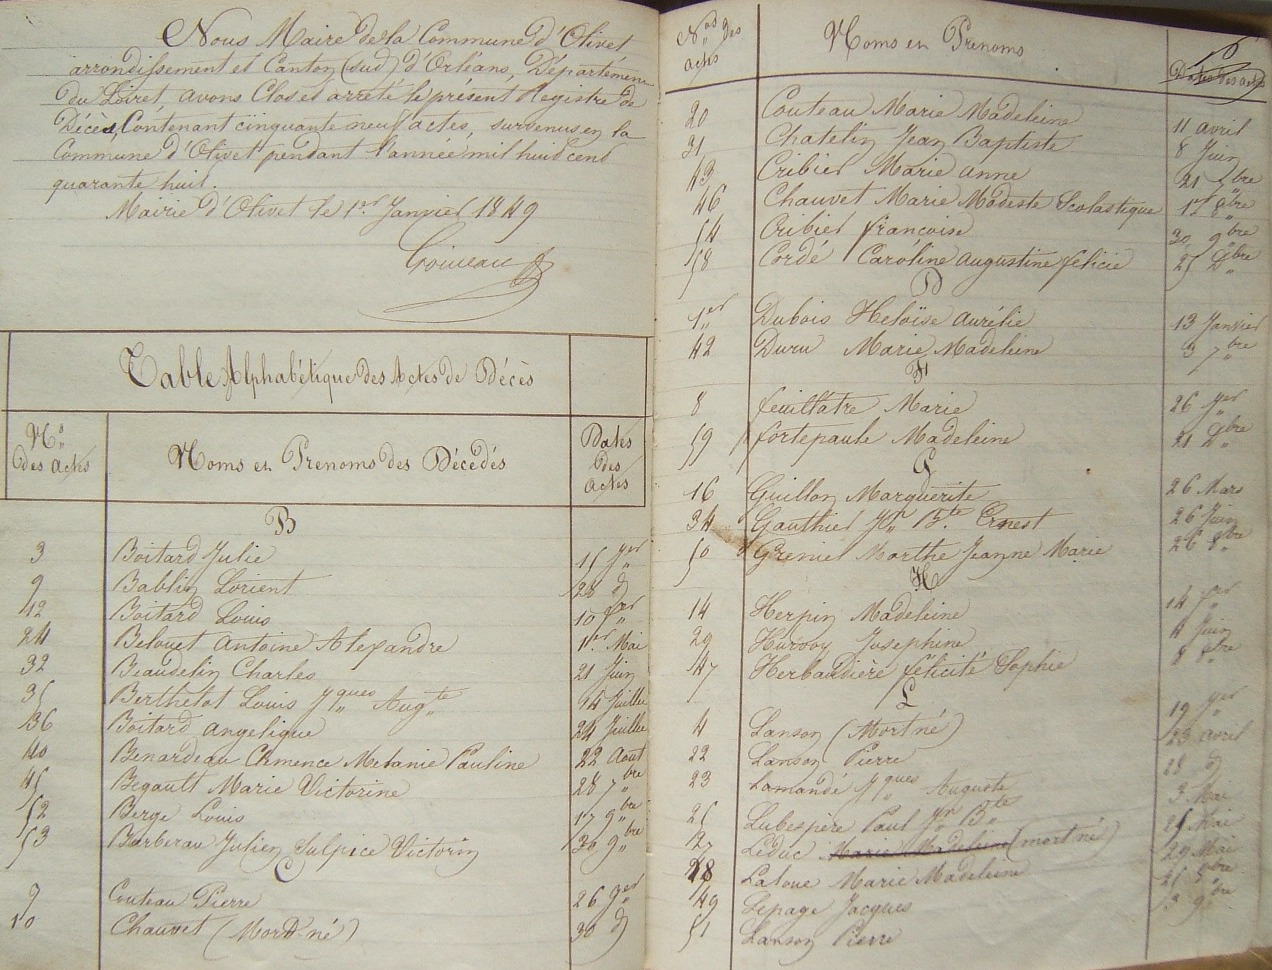 Nous Maire de la Commune d'Olivet
arrondissement et Canton (sud) d'Orléans, Département
du Loiret, avons Clos et arrêté le présent Registre de
Décès, Contenant cinquante neuf actes, survenus en la
Commune d'Olivet pendant l'année mil huit cent
quarante huit.
Mairie d'Olivet le 1er Janvier 1849
Table Alphabétique des Actes de Décès
Nos des actes
Noms et Prenoms des Décédés
Dates des actes
B
3 Boitard Julie 15 Jer
9 Bablin Lorient 28 d
12 Boitard Louis 10 fer
24 Belouet Antoine Alexandre 1er Mai
32 Beaudelin Charles 21 Juin
35 Berthelot Louis Jques Augte 14 Juillet
36 Boitard angelique 24 Juillet
40 Benardeau Clemence Melanie Pauline 22 Aout
45 Begault Marie Victorine 28 7bre
52 Berge Louis 17 9bre
53 Barberau Julien Sulpice Victorin 30 9bre
C
9 Couteau Pierre 26 Jer
10 Chauvet (Mort-né) 30 d
Nos des actes
Noms et Prenoms
Dates des actes
20 Couteau Marie Madeleine 11 avril
31 Chatelin Jean Baptiste 8 Juin
43 Cribier Marie anne 21 7bre
46 Chauvet Marie Modeste Scolastique 17 8bre
54 Cribier françoise 30 9bre
58 Cordé Caroline augustine felicie 25 Dbre
D
1er Dubois Heloïse aurélie 13 Janvier
42 Duru Marie Madeleine 3 7bre
F
8 feuillatre Marie 26 Jer
59 fortepaule Madeleine 21 Dbre
G
16 Guillon Marguerite 26 Mars
34 Gauthier Jn Bte Ernest 26 Juin
50 Grenier Marthe Jeanne Marie 26 8bre
H
14 Herpin Madeleine 14 fer
29 Hurvoy Josephine 4 Juin
47 Herbaudière félicité Sophie 8 8bre
L
4 Lanson (Mort né) 19 Jer
22 Lanson Pierre 23 avril
23 Lamandé Jques Auguste 28 d
25 Lubespère Paul Jn Bte 3 Mai
27 Leduc Marie Madeleine (mort né) 25 Mai
28 Laloue Marie Madeleine 29 Mai
49 Lepage Jacques
51 Lanson Pierre